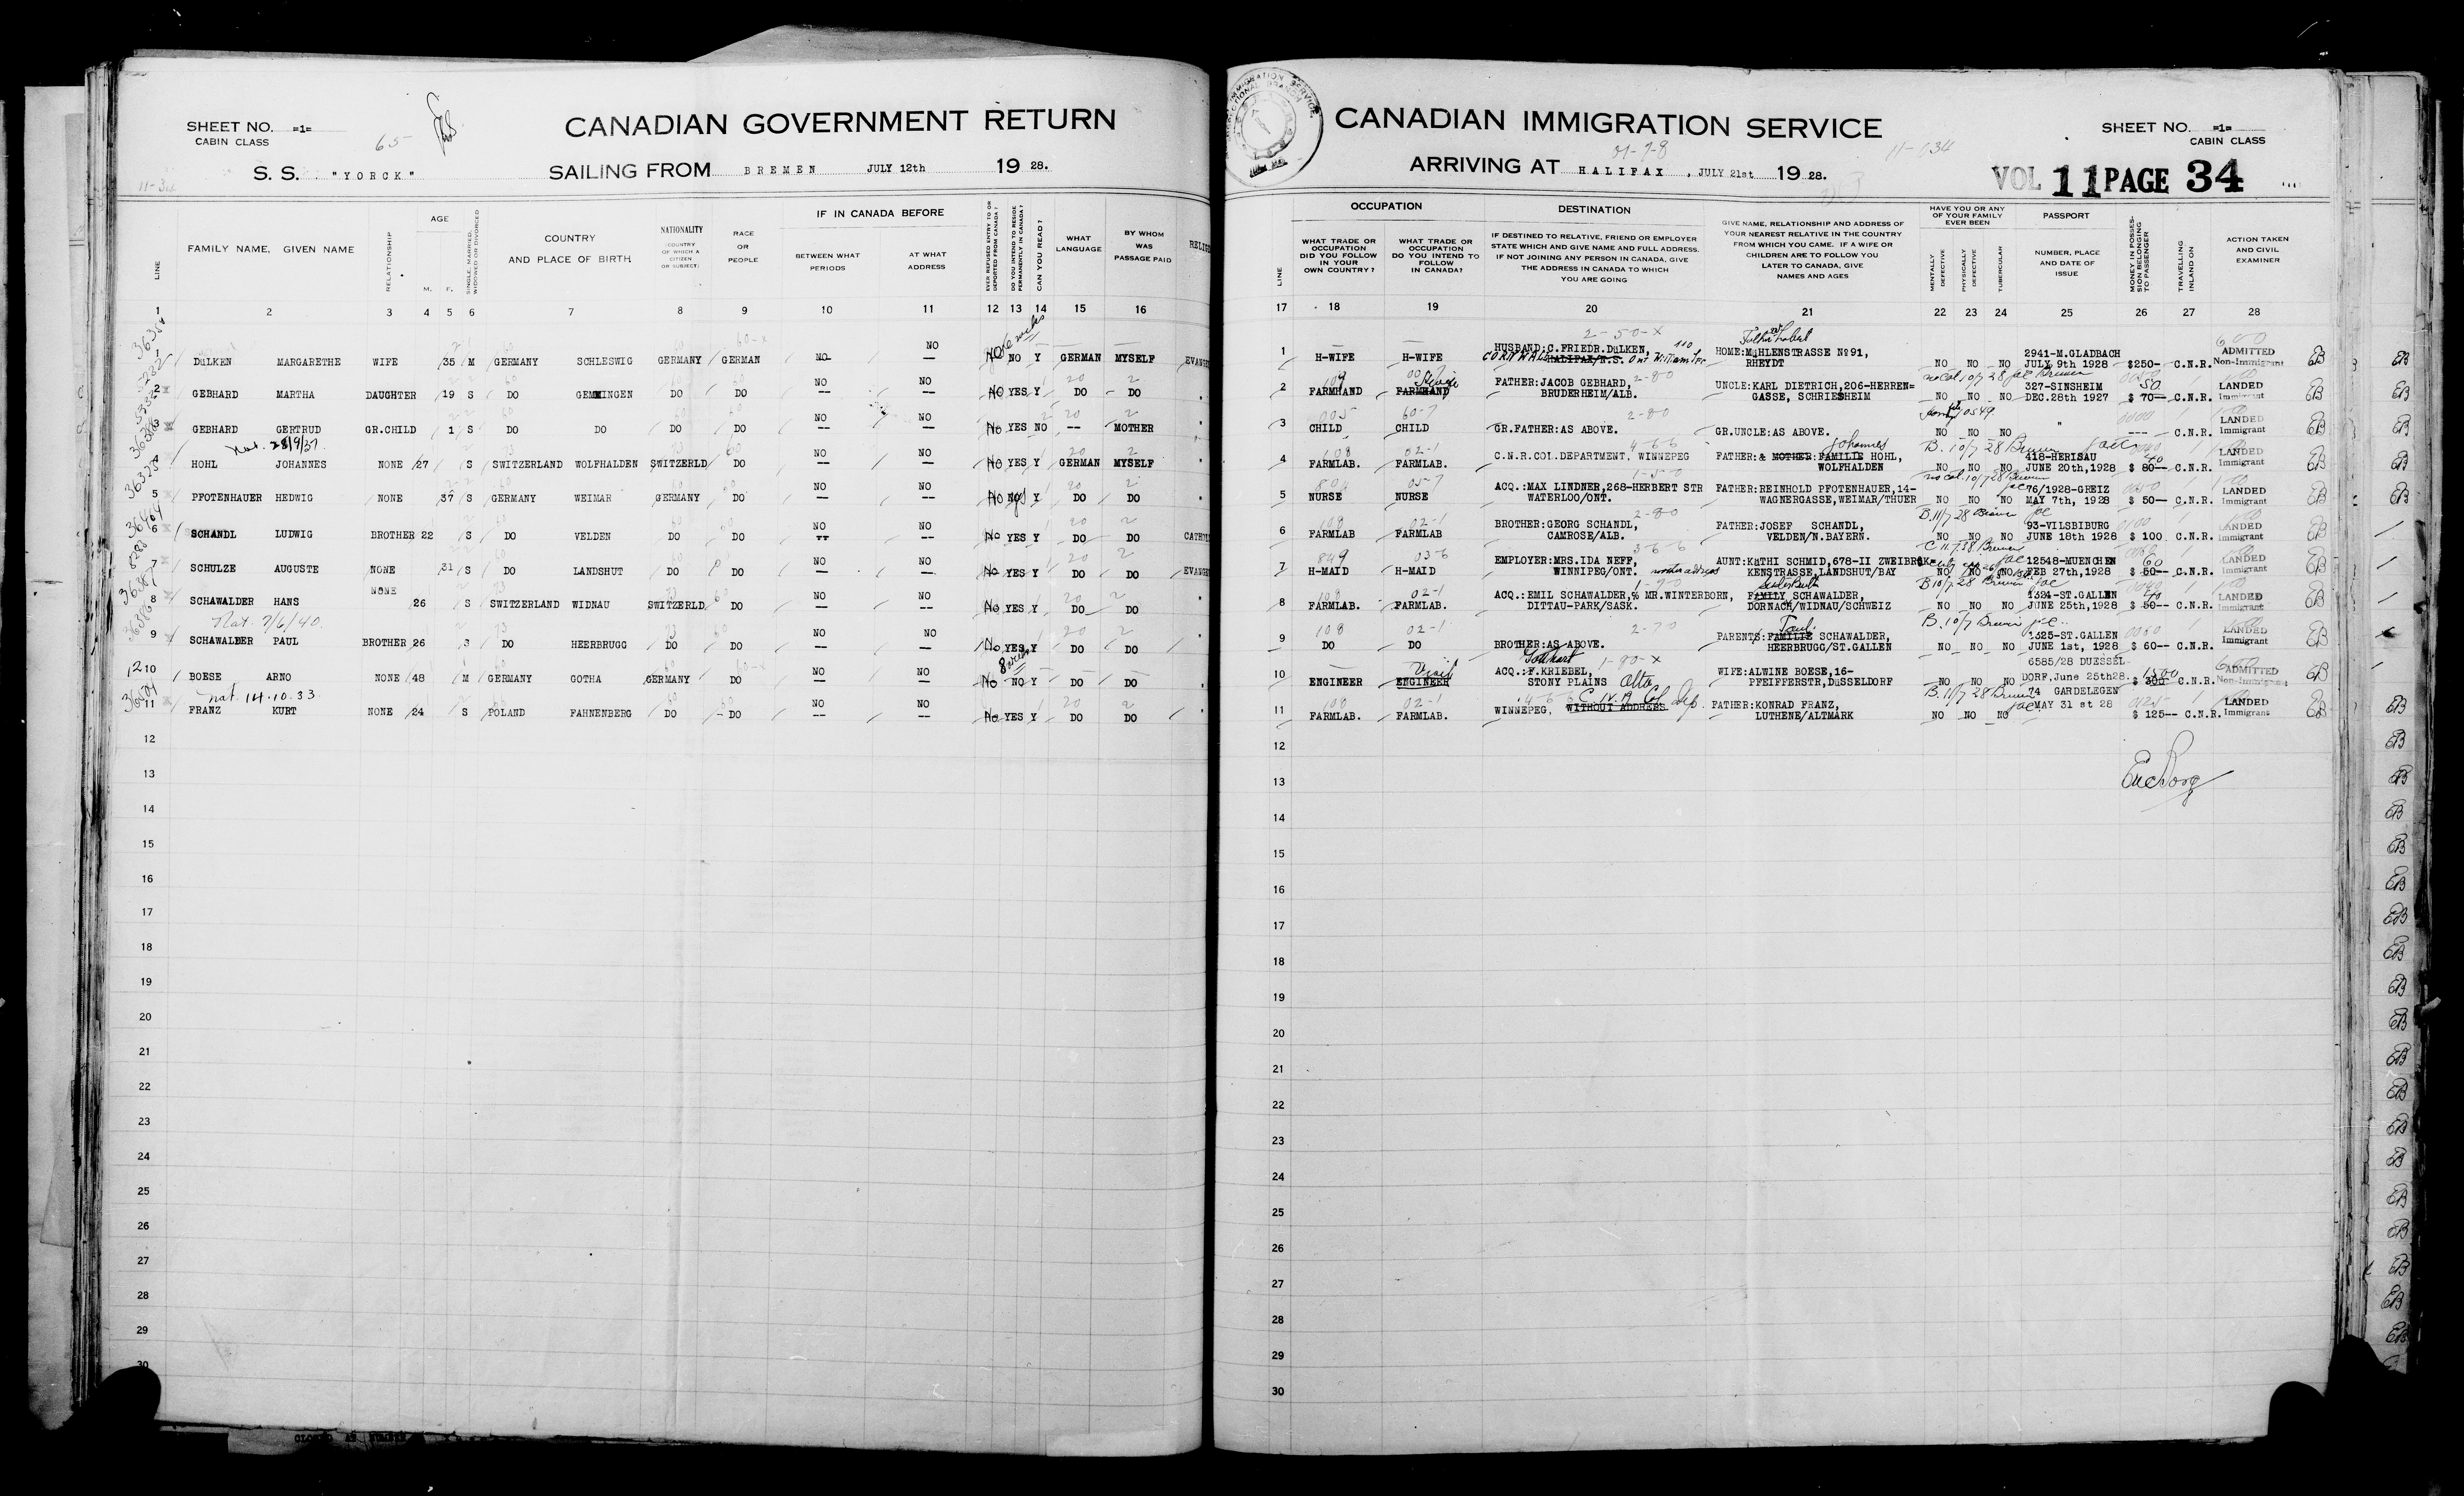 SHEET NO. =1=
CABIN CLASS
65
CANADIAN GOVERNMENT RETURN
S. S. "YORCK" SAILING FROM BREMEN JULY 12th 1928.
11-34
LINE FAMILY NAME, GIVEN NAME RELATIONSHIP AGE M. F. SINGLE, MARRIED, WIDOWED OR DIVORCED COUNTRY AND PLACE OF BIRTH NATIONALITY (COUNTRY OF WHICH A CITIZEN OR SUBJECT) RACE OR PEOPLE IF IN CANADA BEFORE BETWEEN WHAT PERIODS AT WHAT ADDRESS EVER REFUSED ENTRY TO OR DEPORTED FROM CANADA? DO YOU INTEND TO RESIDE PERMANENTLY IN CANADA? CAN YOU READ? WHAT LANGUAGE BY WHOM WAS PASSAGE PAID
1 2 3 4 5 6 7 8 9 10 11 12 13 14 15 16
1 DüLKEN MARGARETHE WIFE 35 M GERMANY SCHLESWIG GERMANY GERMAN NO NO NO NO Y GERMAN MYSELF
2 GEBHARD MARTHA DAUGHTER 19 S DO GEMMINGEN DO DO NO -- NO -- No YES Y DO DO
3 GEBHARD GERTRUD GR.CHILD 1 S DO DO DO DO NO -- NO -- No YES NO -- MOTHER
Nat. 28/9/37.
4 HOHL JOHANNES NONE 27 S SWITZERLAND WOLFHALDEN SWITZERLD DO NO -- NO -- No YES Y GERMAN MYSELF
5 PFOTENHAUER HEDWIG NONE 37 S GERMANY WEIMAR GERMANY DO NO -- NO -- No Y DO DO
6 SCHANDL LUDWIG BROTHER 22 S DO VELDEN DO DO NO -- NO -- No YES Y DO DO
7 SCHULZE AUGUSTE NONE 31 S DO LANDSHUT DO DO NO -- NO -- No YES Y DO DO
8 SCHAWALDER HANS NONE 26 S SWITZERLAND WIDNAU SWITZERLD DO NO -- NO -- No YES Y DO DO
Nat. 7/6/40.
9 SCHAWALDER PAUL BROTHER 26 S DO HEERBRUGG DO DO NO -- NO -- No YES Y DO DO
10 BOESE ARNO NONE 48 M GERMANY GOTHA GERMANY DO NO -- NO -- No NO Y DO DO
nat. 14.10.33
11 FRANZ KURT NONE 24 S POLAND FAHNENBERG DO DO NO -- NO -- No YES Y DO DO
12
13
14
15
16
17
18
19
20
21
22
23
24
25
26
27
28
29
30
CANADIAN IMMIGRATION SERVICE
SHEET NO. =1=
CABIN CLASS
ARRIVING AT HALIFAX, JULY 21st 1928.
VOL 11 PAGE 34
OCCUPATION DESTINATION HAVE YOU OR ANY OF YOUR FAMILY EVER BEEN PASSPORT
LINE WHAT TRADE OR OCCUPATION DID YOU FOLLOW IN YOUR OWN COUNTRY? WHAT TRADE OR OCCUPATION DO YOU INTEND TO FOLLOW IN CANADA? IF DESTINED TO RELATIVE, FRIEND OR EMPLOYER STATE WHICH AND GIVE NAME AND FULL ADDRESS. IF NOT JOINING ANY PERSON IN CANADA, GIVE THE ADDRESS IN CANADA TO WHICH YOU ARE GOING GIVE NAME, RELATIONSHIP AND ADDRESS OF YOUR NEAREST RELATIVE IN THE COUNTRY FROM WHICH YOU CAME. IF A WIFE OR CHILDREN ARE TO FOLLOW YOU LATER TO CANADA, GIVE NAMES AND AGES MENTALLY DEFECTIVE PHYSICALLY DEFECTIVE TUBERCULAR NUMBER, PLACE AND DATE OF ISSUE MONEY IN POSSESSION BELONGING TO PASSENGER TRAVELLING INLAND ON ACTION TAKEN AND CIVIL EXAMINER
17 18 19 20 21 22 23 24 25 26 27 28
1 H-WIFE H-WIFE HUSBAND:C.FRIEDR.DüLKEN, CORNWALL HALIFAX/N.S. Ont HOME:MüHLENSTRASSE No 91, RHEYDT NO NO NO 2941-M.GLADBACH JULY 9th 1928 $250- C.N.R. ADMITTED Non-Immigrant EB
2 FARMHAND FARMHAND FATHER:JACOB GEBHARD, BRUDERHEIM/ALB. UNCLE:KARL DIETRICH,206-HERREN=GASSE, SCHRIESHEIM NO NO NO 327-SINSHEIM DEC.28th 1927 50 $ 70-- C.N.R. LANDED Immigrant EB
3 CHILD CHILD GR.FATHER:AS ABOVE. GR.UNCLE:AS ABOVE. NO NO NO " --- C.N.R. LANDED Immigrant EB
4 FARMLAB. FARMLAB. C.N.R.COL.DEPARTMENT, WINNEPEG FATHER:& MOTHER:FAMILIE HOHL, Johannes WOLFHALDEN NO NO NO 418-HERISAU JUNE 20th,1928 $ 80-- C.N.R. LANDED Immigrant EB
5 NURSE NURSE ACQ.:MAX LINDNER,268-HERBERT STR WATERLOO/ONT. FATHER:REINHOLD PFOTENHAUER,14-WAGNERGASSE,WEIMAR/THUER NO NO NO 76/1928-GREIZ MAY 7th, 1928 $ 50-- C.N.R. LANDED Immigrant EB
6 FARMLAB FARMLAB BROTHER:GEORG SCHANDL, CAMROSE/ALB. FATHER:JOSEF SCHANDL, VELDEN/N.BAYERN. NO NO NO 93-VILSBIBURG JUNE 18th 1928 $ 100 C.N.R. LANDED Immigrant EB
7 H-MAID H-MAID EMPLOYER:MRS.IDA NEFF, WINNIPEG/ONT. AUNT:KäTHI SCHMID,678-II ZWEIBRüKENSTRASSE,LANDSHUT/BAY NO NO NO 12548-MUENCHEN FEB 27th,1928 60 $ 50-- C.N.R. LANDED Immigrant EB
8 FARMLAB. FARMLAB. ACQ.:EMIL SCHAWALDER,% MR.WINTERBORN, DITTAU-PARK/SASK. FAMILY SCHAWALDER, DORNACH/WIDNAU/SCHWEIZ NO NO NO 1324-ST.GALLEN JUNE 25th,1928 $ 50-- C.N.R. LANDED Immigrant EB
9 DO DO BROTHER:AS ABOVE. PARENTS:FAMILIE SCHAWALDER, Paul HEERBRUGG/ST.GALLEN NO NO NO 1325-ST.GALLEN JUNE 1st, 1928 $ 60-- C.N.R. LANDED Immigrant EB
10 ENGINEER ENGINEER Visit ACQ.:F.KRIEBEL, STONY PLAINS Alta WIFE:ALWINE BOESE,16-PFEIFFERSTR,DüSSELDORF NO NO NO 6585/28 DUESSELDORF,June 25th28. $ 300 C.N.R. ADMITTED Non-Immigrant EB
11 FARMLAB. FARMLAB. WINNEPEG, WITHOUT ADDRESS FATHER:KONRAD FRANZ, LUTHENE/ALTMARK NO NO NO 74 GARDELEGEN MAY 31 st 28 $ 125-- C.N.R. LANDED Immigrant EB
12
13
14
15
16
17
18
19
20
21
22
23
24
25
26
27
28
29
30